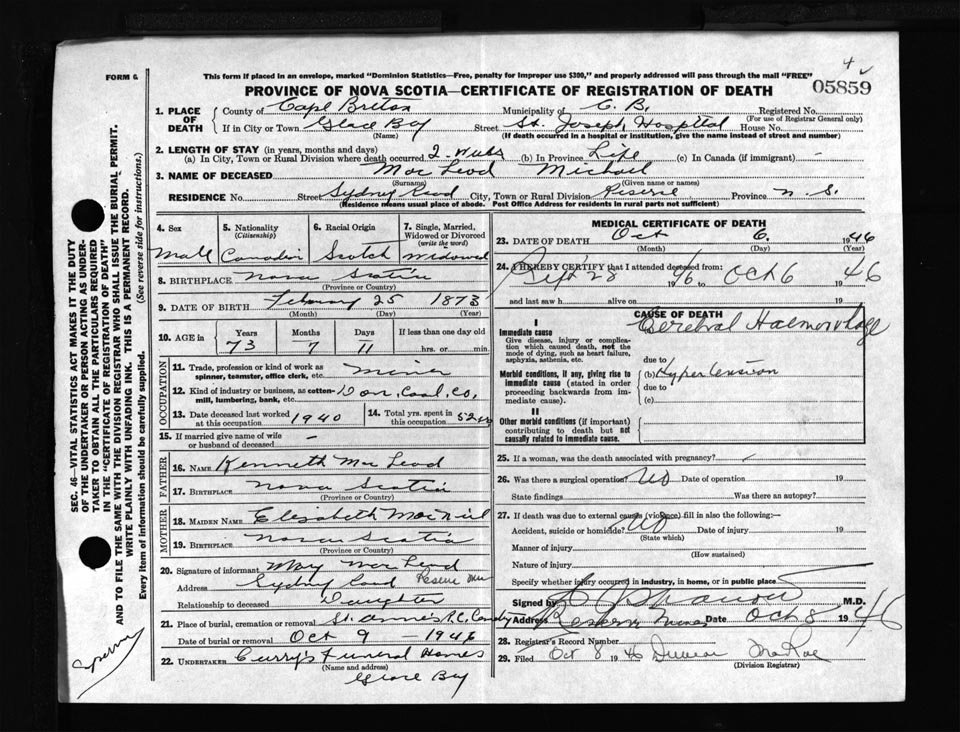 FORM 6.
4 ✓
This form if placed in an envelope, marked "Dominion Statistics—Free, penalty for improper use $300," and properly addressed will pass through the mail "FREE"
PROVINCE OF NOVA SCOTIA—CERTIFICATE OF REGISTRATION OF DEATH
05859
1. PLACE OF DEATH
County of Cape Breton Municipality of C. B. Registered No.
(For use of Registrar General only)
If in City or Town Glace Bay Street St. Joseph Hospital House No.
(Name) (If death occurred in a hospital or institution, give the name instead of street and number)
2. LENGTH OF STAY (in years, months and days)
(a) In City, Town or Rural Division where death occurred 2. Wks (b) In Province Life (c) In Canada (if immigrant) -
3. NAME OF DECEASED Mac Leod Michael
(Surname) (Given name or names)
RESIDENCE No. Street Sydney Road City, Town or Rural Division Reserve Province N. S.
(Residence means usual place of abode. Post Office Address for residents in rural parts not sufficient)
4. Sex Male
5. Nationality (Citizenship) Canadian
6. Racial Origin Scotch
7. Single, Married, Widowed or Divorced (write the word) Widowed
8. BIRTHPLACE Nova Scotia
(Province or Country)
9. DATE OF BIRTH February 25 1873
(Month) (Day) (Year)
10. AGE in Years Months Days If less than one day old
73 7 11 hrs. or min.
OCCUPATION
11. Trade, profession or kind of work as spinner, teamster, office clerk, etc. miner
12. Kind of industry or business, as cotton-mill, lumbering, bank, etc. Dom. Coal. Co,
13. Date deceased last worked at this occupation 1940
14. Total yrs. spent in this occupation 52
15. If married give name of wife or husband of deceased -
FATHER
16. NAME Kenneth Mac Leod
17. BIRTHPLACE Nova Scotia
(Province or Country)
MOTHER
18. MAIDEN NAME Elizabeth MacNeil
19. BIRTHPLACE Nova Scotia
(Province or Country)
20. Signature of informant May Mac Leod
Address Sydney Road Reserve
Relationship to deceased Daughter
21. Place of burial, cremation or removal St. Anne's R.C.
Date of burial or removal Oct 9 - 1946
22. UNDERTAKER Curry's Funeral Homes
(Name and address)
Glace Bay
MEDICAL CERTIFICATE OF DEATH
23. DATE OF DEATH Oct 6. 1946
(Month) (Day) (Year)
24. I HEREBY CERTIFY that I attended deceased from:
Sept 28 1946 to Oct 6 1946
and last saw h alive on 19
CAUSE OF DEATH
I
Immediate cause
Give disease, injury or complication which caused death, not the mode of dying, such as heart failure, asphyxia, asthenia, etc.
Cerebral Haemorrhage
due to
Morbid conditions, if any, giving rise to immediate cause (stated in order proceeding backwards from immediate cause).
(b) Hypertension
due to
(c)
II
Other morbid conditions (if important) contributing to death but not causally related to immediate cause.
25. If a woman, was the death associated with pregnancy?
26. Was there a surgical operation? No Date of operation 19
State findings Was there an autopsy?
27. If death was due to external causes (violence) fill in also the following:-
Accident, suicide or homicide? No Date of injury 19
(State which)
Manner of injury
(How sustained)
Nature of injury
Specify whether injury occurred in industry, in home, or in public place
Signed by M.D.
Address Reserve Mines Date Oct 8 1946
28. Registrar's Record Number
29. Filed Oct 8 1946 Duncan MacRae
(Division Registrar)
SEC. 46—VITAL STATISTICS ACT MAKES IT THE DUTY
OF THE UNDERTAKER OR PERSON ACTING AS UNDER-
TAKER TO OBTAIN ALL THE PARTICULARS REQUIRED
IN THE "CERTIFICATE OF REGISTRATION OF DEATH"
AND TO FILE THE SAME WITH THE DIVISION REGISTRAR WHO SHALL ISSUE THE BURIAL PERMIT.
WRITE PLAINLY WITH UNFADING INK. THIS IS A PERMANENT RECORD.
Every item of information should be carefully supplied. (See reverse side for instructions.)